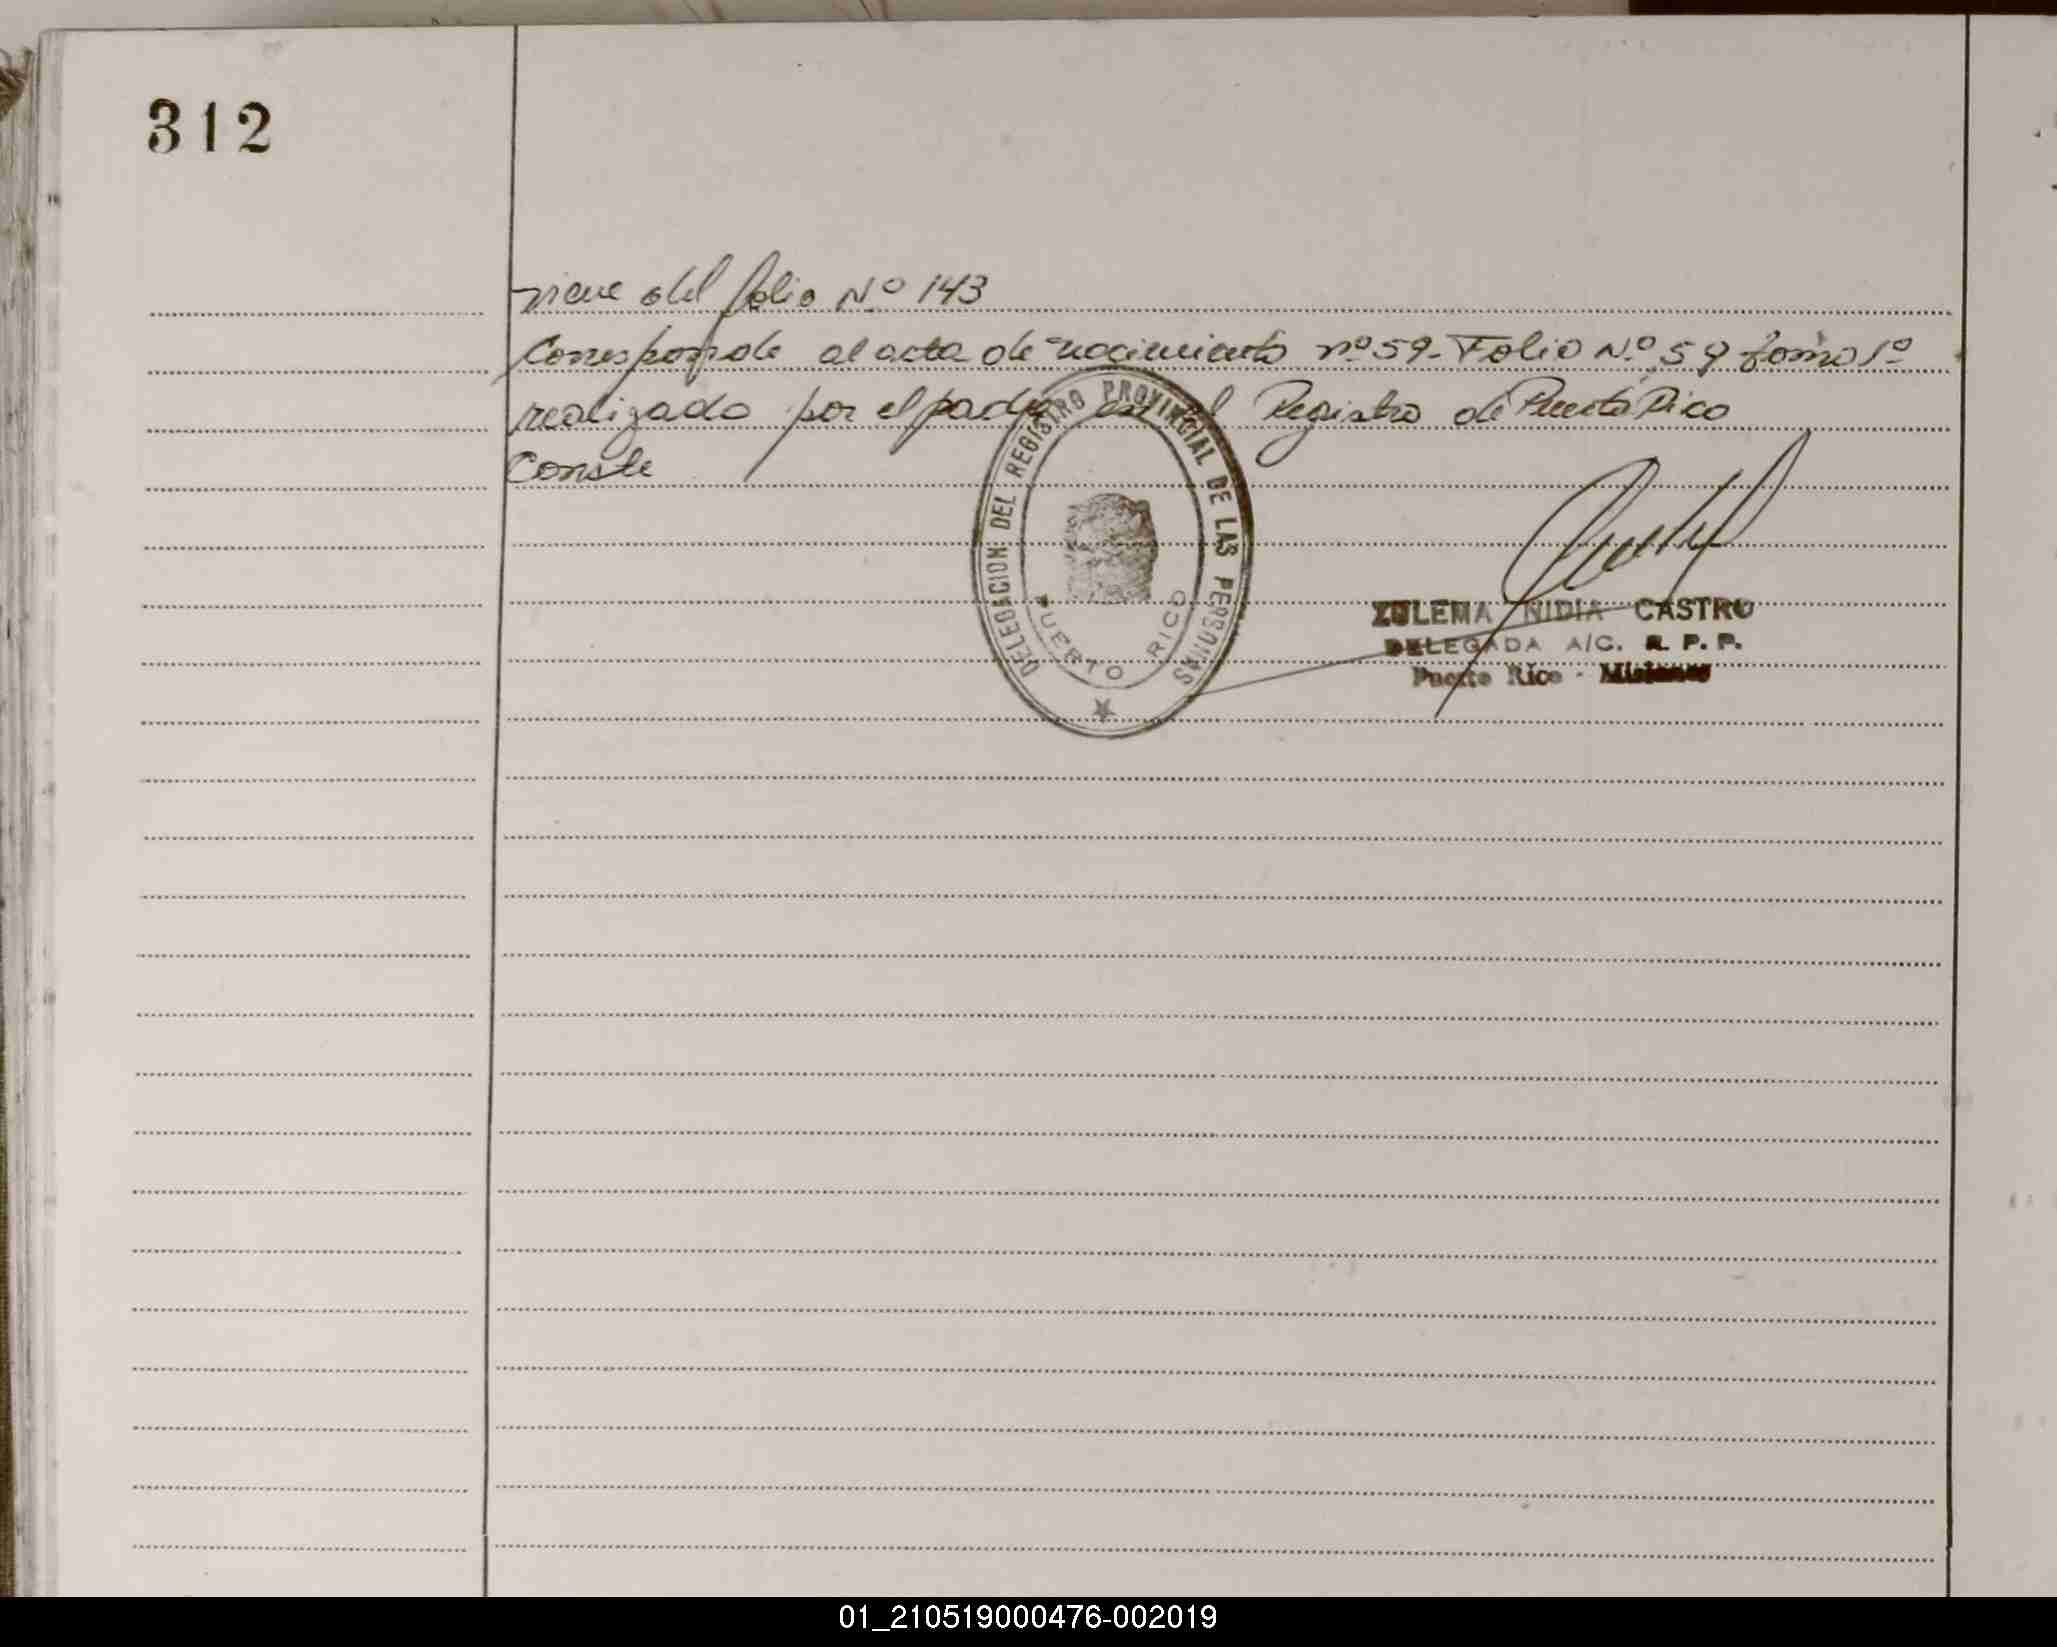 312
viene del folio Nº 143
Corresponde al acta de nacimiento nº 59 - Folio Nº 59 tomo 1º
realizado por el padre en el Registro de Puerto Rico
Conste
DELEGACION DEL REGISTRO PROVINCIAL DE LAS PERSONAS
PUERTO RICO
ZULEMA NIDIA CASTRO
DELEGADA A/C. R. P. P.
Puerto Rico - Misiones
01_210519000476-002019